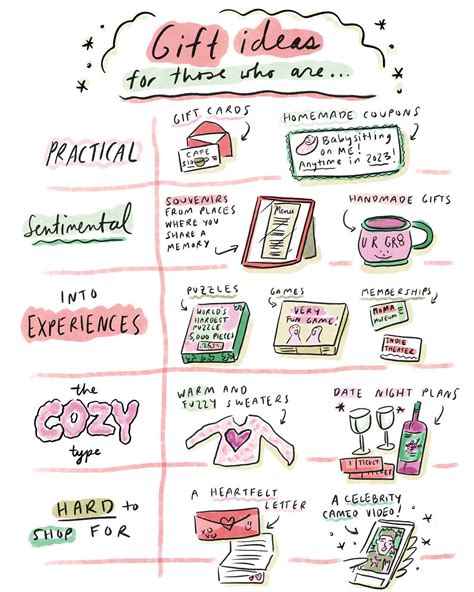 Gift ideas
for those who are...
PRACTICAL
GIFT CARDS
CAFE
$10
HOMEMADE COUPONS
Babysitting
on ME!
Anytime in 2023!
Sentimental
SOUVENIRS
FROM PLACES
WHERE YOU
SHARE A
MEMORY
Menu
HANDMADE GIFTS
U R GR8
INTO
EXPERIENCES
PUZZLES
WORLD'S
HARDEST
PUZZLE
5,000 PIECES
GAMES
VERY
FUN GAME!
MEMBERSHIPS
MOMA
MUSEUM
INDIE
THEATER
the
COZY
type
WARM AND
FUZZY SWEATERS
DATE NIGHT PLANS
1 TICKET
TICKET
HARD to
SHOP FOR
A HEARTFELT
LETTER
A CELEBRITY
CAMEO VIDEO!